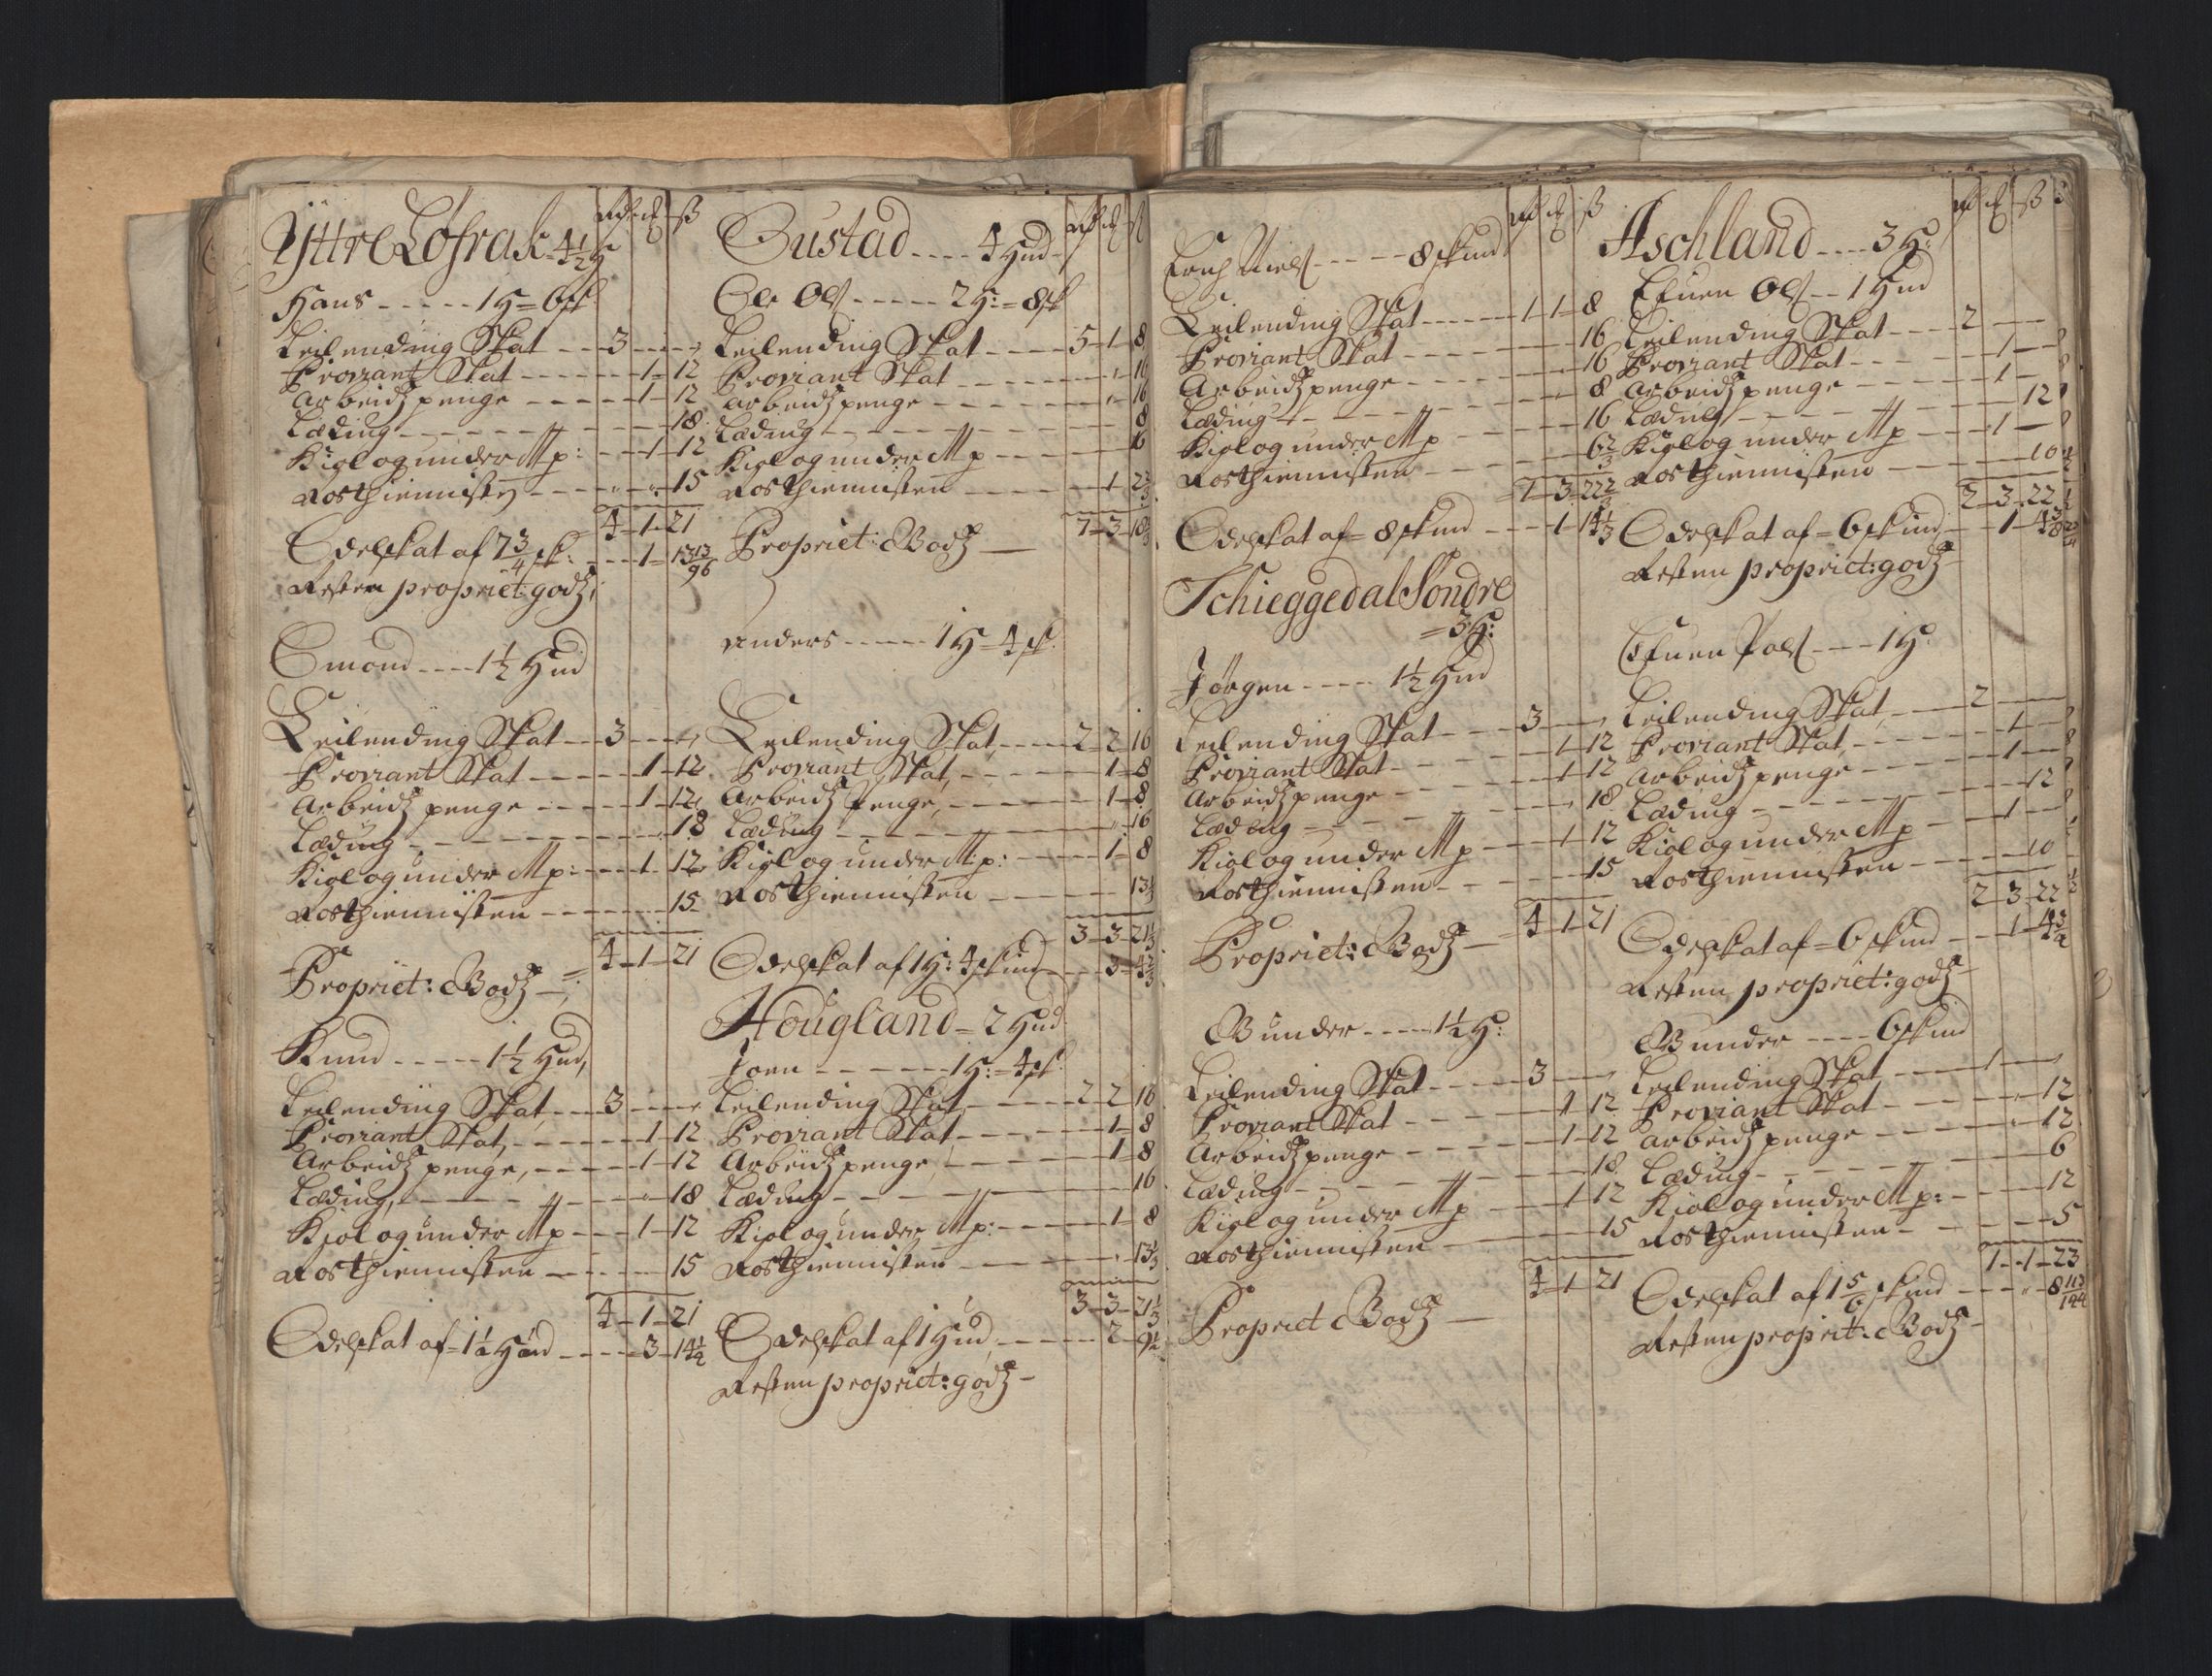 Rd ℔ ß
Yttre Lofrak - 4½ H
Hans - - - - - 1 H = 6 sk
Leilending Skat - - 3 - - -
Proviant Skat - - - - - - 1 - 12
Arbeidz penge - - - - - 1 - 12
Læding - - - - - - - - 18
Kiol og under M p: - - 1 - 12
Rosthienniste - - - - 15
4 - 1 - 21
Odelskat af 7 3/4 sk: - - - 1 - 13 13/96
Resten propriet: godz,
Omond - - - - 1½ Hud
Leilending Skat - - 3 - - -
Proviant Skat - - - - - 1 - 12
Arbeidz penge - - - - - 1 - 12
Læding - - - - - - - - - 18
Kiol og under M p: - - - 1 - 12
Rosthiennisten - - - - - - 15
4 - 1 - 21
Propriet: Godz -
Knud - - - - - 1½ Hud,
Leilending Skat - - - 3 - - -
Proviant Skat, - - - - - - 1 - 12
Arbeidz penge, - - - - - 1 - 12
Læding, - - - - - - - 18
Kiol og under M p - - - 1 - 12
Rosthiennisten - - - - - 15
4 - 1 - 21
Odelskat af = 1½ Hud - - - - 3 - 14½
Rd ℔ ß
Gustad - - - - 4 Hud
Ole Ols - - - - - 2 H: = 8 sk
Leilending Skat - - - - 5 - 1 - 8
Proviant Skat - - - - - - - 16
Arbeidz penge - - - - - - - 16
Læding - - - - - - - - - 8
Kiol og under M p - - - - - 16
Rosthiennisten - - - - - 1 - 2 2/3
7 - 3 - 18 2/3
Propriet: Godz -
Anders - - - - - 1 H = 4 sk.
Leilending Skat, - - - - 2 - 2 - 16
Proviant Skat, - - - - - - 1 - 8
Arbeidz Penge, - - - - - - 1 - 8
Læding - - - - - - - - 16
Kiol og under M: p: - - - - - 1 - 8
Rosthiennisten - - - - - 13⅓
3 - 3 - 21⅓
Odelskat af 1 H: 4 skind - - - 3 - 4 2/3
Hougland = 2 Hud
Joen - - - - - - 1 H: = 4 sk
Leilending Skat - - - - - 2 - 2 - 16
Proviant Skat - - - - - - 1 - 8
Arbeidz penge, - - - - - - 1 - 8
Læding - - - - - - - - 16
Kiol og under M p: - - - - - 1 - 8
Rosthiennisten - - - - - 13⅓
3 - 3 - 21⅓
Odelskat af 1 Hud, - - - - - 2 - 9½
Resten propriet: godz -
Rd ℔ ß
Erich Niels - - - - - 8 skind
Leilending Skat - - - - - - 1 - 1 - 8
Proviant Skat - - - - - - - 16
Arbeidz penge - - - - - - - 16
Læding - - - - - - - - - 8
Kiol og under M p - - - - - 16
Rosthiennisten - - - - - - 6 2/3
1 - 3 - 22 2/3
Odelskat af = 8 skind - - - 1 - 14⅓
Schieggedal Søndre
= 3 H:
Jörgen - - - - 1½ Hud
Leilending Skat - - - 3 - - -
Proviant Skat - - - - - - 1 - 12
Arbeidz penge - - - - - - 1 - 12
Læding - - - - - - - 18
Kiol og under M p - - - - 1 - 12
Rosthiennisten - - - - - - 15
4 - 1 - 21
Propriet: Godz -
Gunder - - - - - 1½ H:
Leilending Skat - - - - - 3 - - -
Proviant Skat - - - - - - 1 - 12
Arbeidz penge - - - - - - 1 - 12
Læding - - - - - - - - - 18
Kiol og under M p - - - - 1 - 12
Rosthiennisten - - - - - 15
4 - 1 - 21
Propriet Godz -
Rd ℔ ß
Aschland - - - - 3 H:
Efuen Ols - - 1 Hud
Leilending Skat - - - - 2 - -
Proviant Skat - - - - - - 1 -
Arbeidz penge - - - - - 1 -
Læding - - - - - - - - 12
Kiol og under M p - - - - 1 -
Rosthiennisten - - - - - 10
2 - 3 - 22
Odelskat af = 6 skind - - 1 - 4
Resten propriet: godz -
Efuen Pols - - - - 1 H.
Leilending Skat, - - - - 2 - -
Proviant Skat, - - - - - - 1 -
Arbeidz penge - - - - - - 1 -
Læding - - - - - - - - 12
Kiol og under M p - - - - 1 -
Rosthiennisten - - - - - 10
2 - 3 - 22
Odelskat af = 6 skind - - - 1 - 4
Resten propriet: godz -
Gunder - - - - 6 skind
Leilending Skat - - - - 1 - -
Proviant Skat - - - - - - - 12
Arbeidz penge - - - - - - - 12
Læding - - - - - - - - 6
Kiol og under M p: - - - - - 12
Rosthiennisten - - - - - - 5
1 - 1 - 23
Odelskat af 1 5/6 skind - - - - 8 113/144
Resten propriet: Godz -